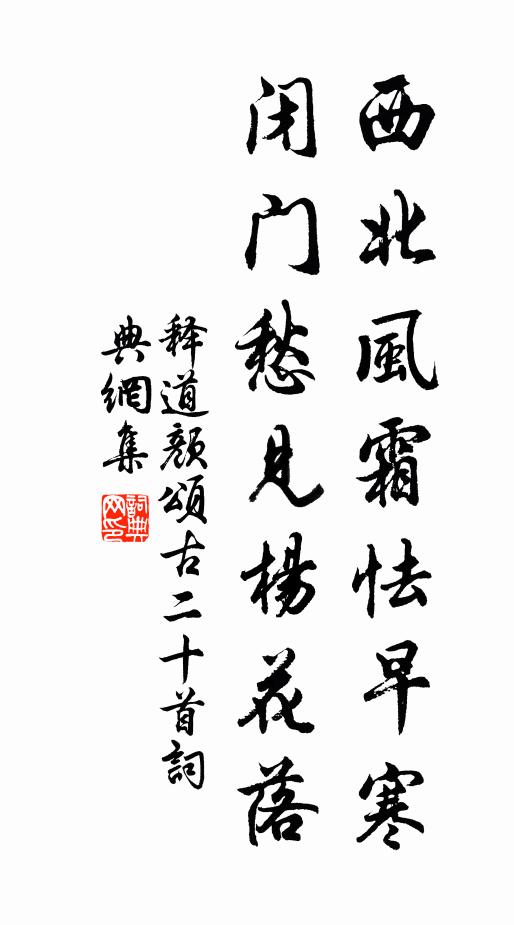 西北風霜怯早寒
闭门愁見楊花落
释道颜頌古二十首詞
典網集
詞典网印